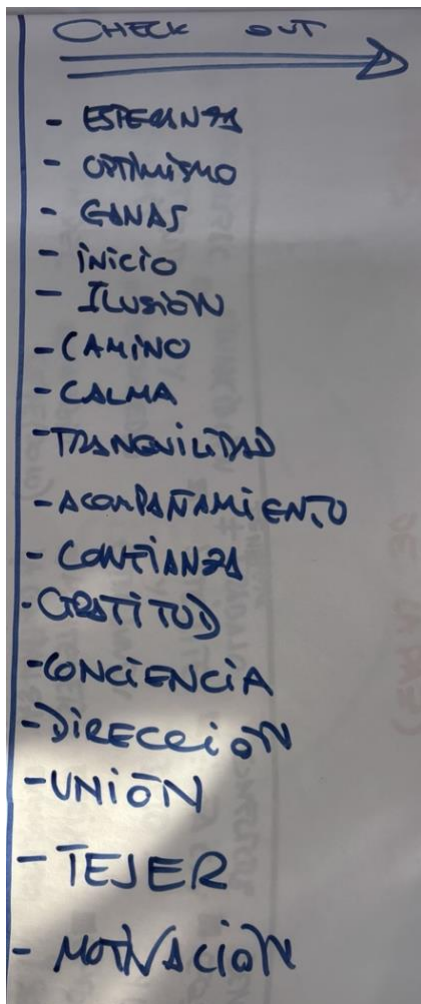 CHECK OUT
- ESPERANZA
- OPTIMISMO
- GANAS
- INICIO
- ILUSIÓN
- CAMINO
- CALMA
- TRANQUILIDAD
- ACOMPAÑAMIENTO
- CONFIANZA
- GRATITUD
- CONCIENCIA
- DIRECCIÓN
- UNIÓN
- TEJER
- MOTIVACIÓN